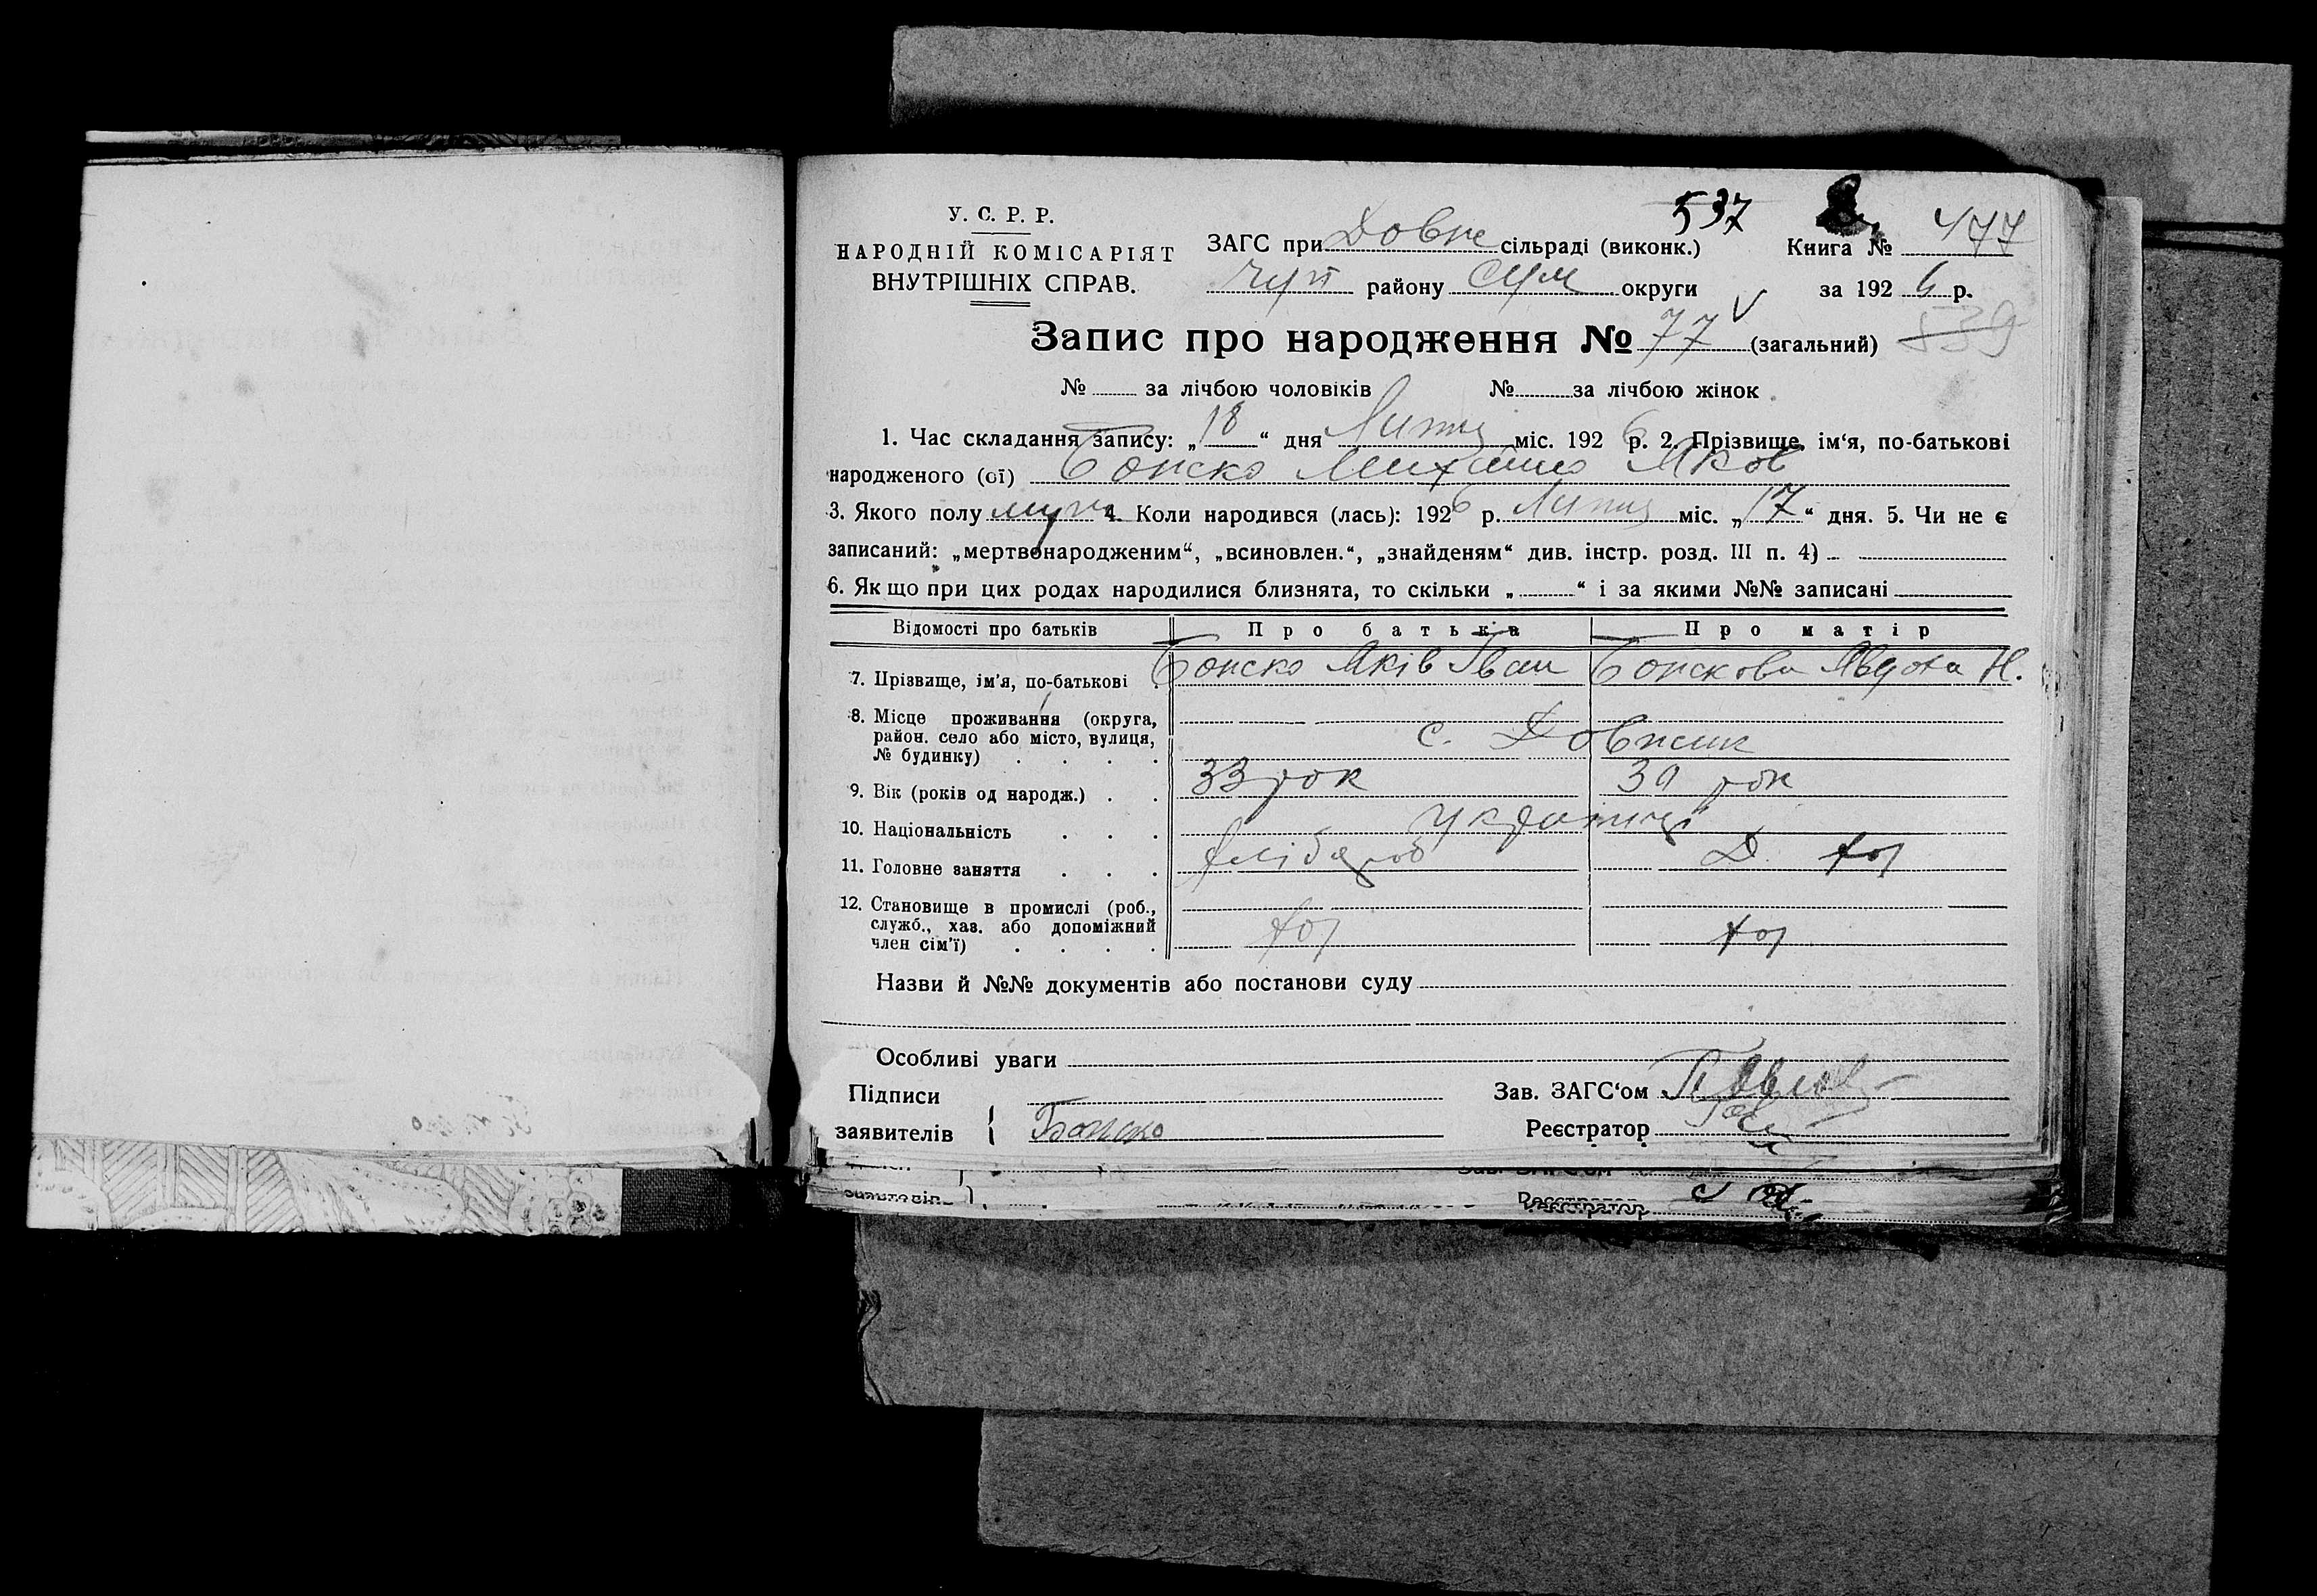 У. С. Р. Р.
НАРОДНІЙ КОМІСАРІЯТ
ВНУТРІШНІХ СПРАВ.
537
ЗАГС при Довж сільраді (виконк.) Книга № 477
Чуп району Сум округи за 192 6 р.
Запис про народження № 77 (загальний) 539
№ за лічбою чоловіків № за лічбою жінок
1. Час складання запису: „18“ дня Липня міс. 192 6 р. 2. Прізвище, ім‘я, по-батькові
народженого (ої) Михайло Яков
3. Якого полу муж 4. Коли народився (лась): 1926 р. Липня міс. „17“ дня. 5. Чи не є
записаний: „мертвонародженим“, „всиновлен.“, „знайденям“ див. інстр. розд. III п. 4)
6. Якщо при цих родах народилися близнята, то скільки „ “ і за якими №№ записані
Відомості про батьків Про батька Про матір
7. Прізвище, ім'я, по-батькові Яків Іван Явдоха Н.
8. Місце проживання (округа,
район. село або місто, вулиця,
№ будинку) с. Довжик
9. Вік (років од народж.) 33 рок рок
10. Національність Українці
11. Головне заняття Хлібороб Д. хоз
12. Становище в промислі (роб.,
служб., хаз. або допоміжний
член сім'ї) хоз хоз
Назви й №№ документів або постанови суду
Особливі уваги
Підписи Зав. ЗАГС‘ом
заявителів Реєстратор
Зав. ЗАГС'ом
заявителів Реєстратор